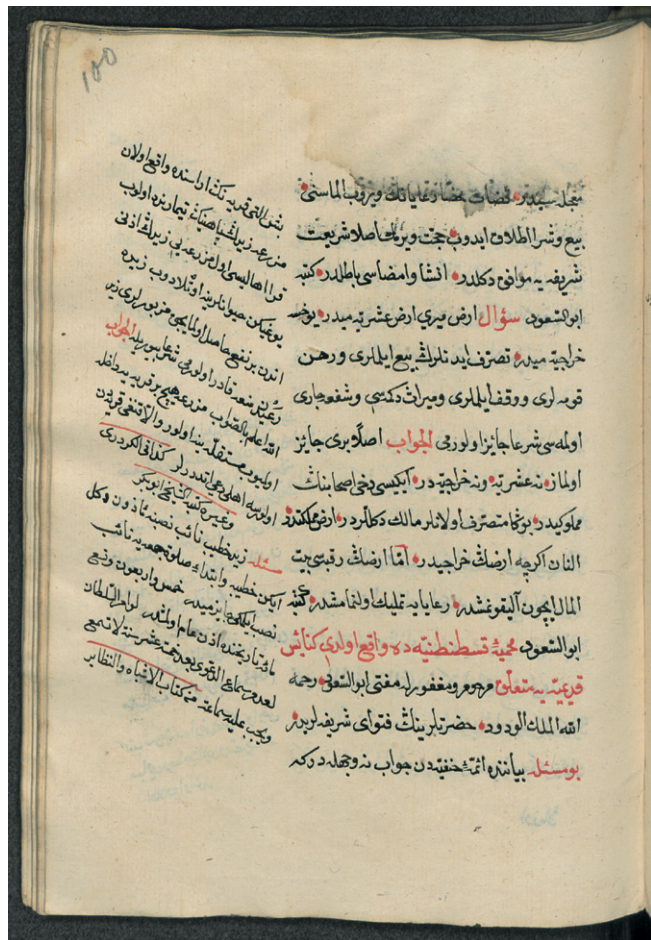 100
معجله سیدر قضات بعضا رعایانك ویروب الماسنی
بیع وشرا اطلاق ایدوب حجت ویرمك اصلا شریعت
شریفه یه موافق دكلدر انشا وامضاسی باطلدر كتبه
ابو السعود سؤال ارض میری ارض عشریه میدر یوخسه
خراجیه میدر تصرف ایدنلرك بیع ایلملری ورهن
قومه لری ووقف ایلملری ومیراث دكمسی وشفعه جاری
اولمه سی شرعا جایز اولورمی الجواب اصلا بری جایز
اولماز نه عشریه ونه خراجیه در ایكیسی دخی اصحابنك
مملوكیدر بوكا متصرف اولانلر مالك دكللردر ارض مملكتدر
النان اكرچه ارضك خراجیدر امّا ارضك رقبه سی بیت
المال ایچون آلیقونمشدر رعایایه تملیك اولنمامشدر كتبه
ابو السعود محمیۀ قسطنطنیّه ده واقع اولان كنایس
قدیمیّه یه متعلّق مرحوم ومغفور له مفتی ابو السعود رحمه
الله الملك الودود حضرتلرینك فتوای شریفه لریدر
بو مسئله بیاننده ائمّۀ حنفیّه دن جواب نه وجهله دركه
بش التی قریه نك اراسنده واقع اولان
مزرعه زیرك سپاهینك تیمارنده اولوب
قرا اهالیسی اول مزرعه یی زیرك اذنی
یوغیكن حیوانلرینه اوتلادوب زیده
اندن بر نفع حاصل اولمایجق مزبورلری زید
رعیدن منعه قادر اولورمی شرعا بیوریله الجواب
الله اعلم بالصواب مزرعه هیچ بر قریه یه داخله
اولمیوب مستقله ینه اولور والا قنغی قریه دن
اولورسه اهلی رعی ایدرلر كذا فی الكردری
وغیره كتبه الشیخ ابو بكر
مسئله زید خطیب نائب نصبنه مأذون وكل
ایكن خطبه وابتداء صلوة جمعه یه نائب
نصب ایلمك جایزمیدر خمس واربعون وتسع
مائه تاریخنده اذن عام اولمشدر لو امر السلطان
لعدم سماع الدعوی بعد خمسة عشر سنة لا تسمع
ویجب علیه سماعه من كتاب الاشباه والنظایر